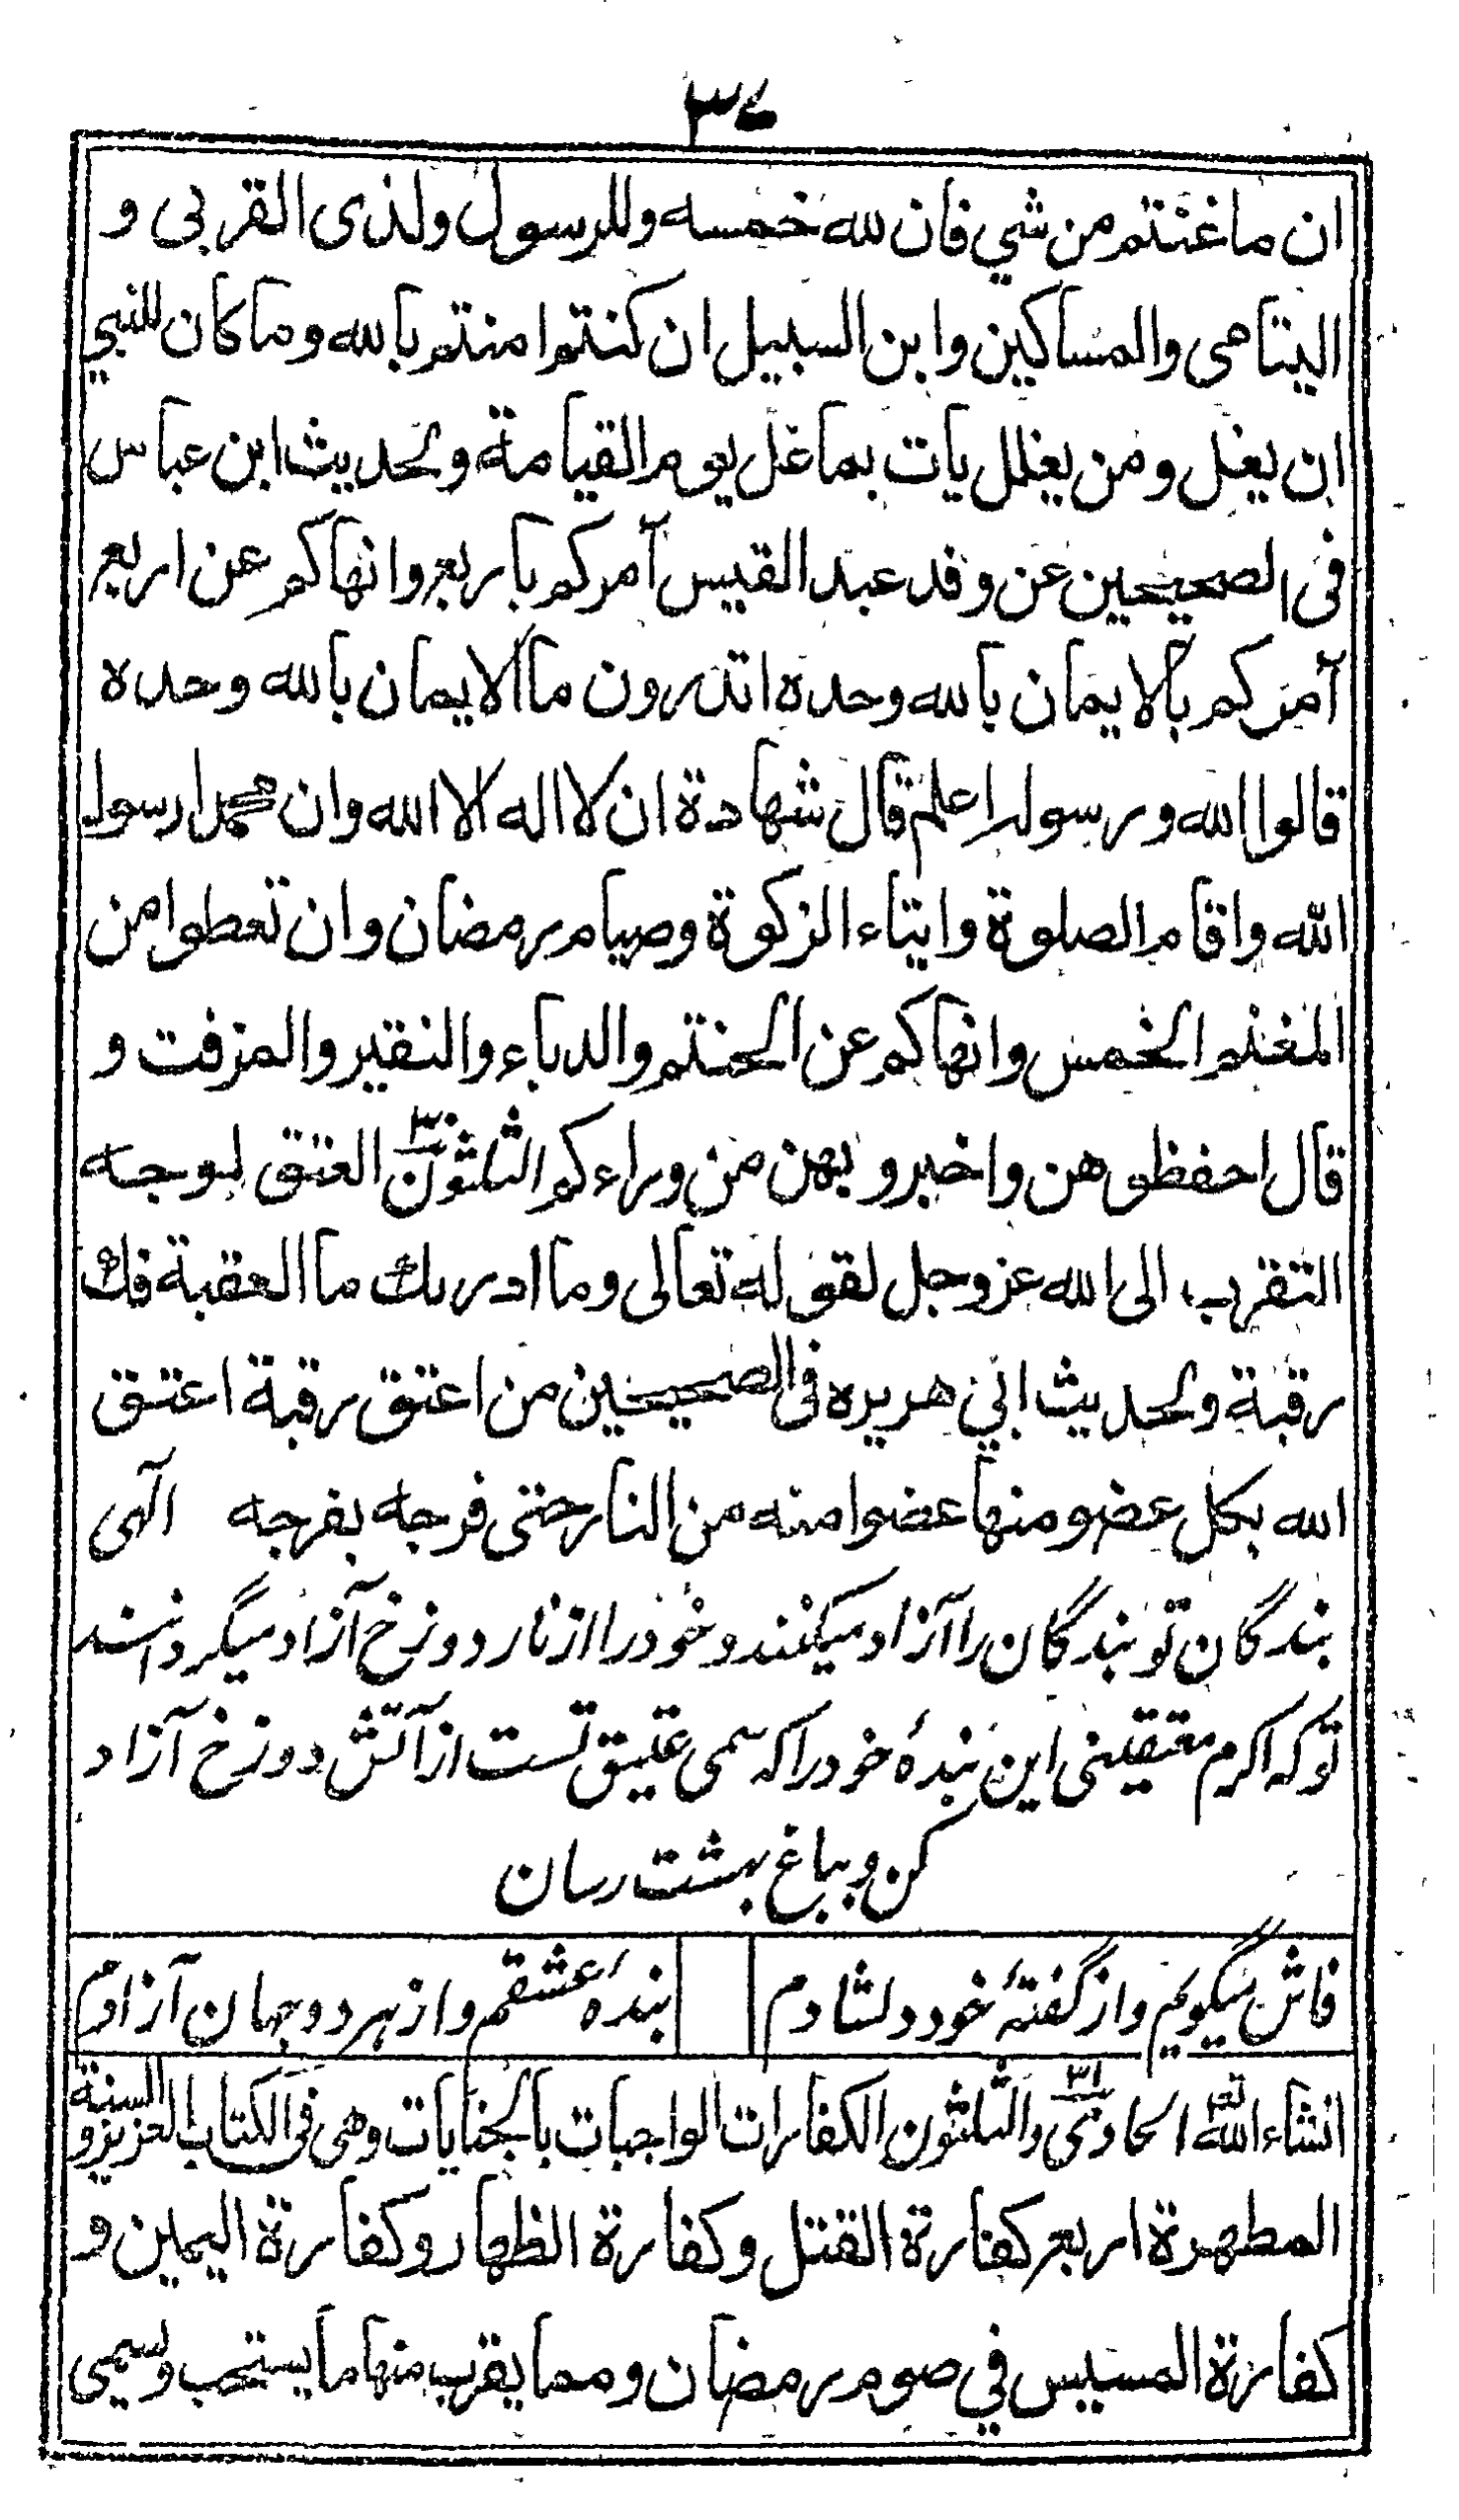 ٣٧
ان ما غنتم من شي فان لله خمسه وللرسول ولذى القربى و
اليتامى والمساكين وابن السبيل ان كنتم امنتم بالله وما كان للنبي
ان يغل ومن يغلل يات بما غل يوم القيامة ولحديث ابن عباس
فى الصحيحين عن وفد عبد القيس آمركم باربع وانهاكم عن اربع
آمركم بالايمان بالله وحده اتدرون ما الايمان بالله وحده
قالوا الله ورسوله اعلم قال شهادة ان لا اله الا الله وان محمدا رسول
الله واقام الصلوة وايتاء الزكوة وصيام رمضان وان تعطوا من
المغنم الخمس وانهاكم عن الحنتم والدباء والنقير والمزفت و
قال احفظوهن واخبروبهن من وراءكم الثلثون ٣٠ العتق لوجه
التقرب الى الله عزوجل لقوله تعالى وما ادريك ما العقبة فك
رقبة ولحديث ابي هريره فى الصحيحين من اعتق رقبة اعتق
الله بكل عضو منها عضوا منه من النار حتى فرجه بفرجه الهى
بندگان تو بندگان را آزاد میکنند و خود را از نار دوزخ آزاد میگردانند
تو که اکرم معتقینی این بندهٔ خود را که سمی عتیق تست از آتش دوزخ آزاد
کن و بباغ بهشت رسان
فاش میگویم و از گفتهٔ خود دلشادم بندهٔ عشقم و از هر دو جهان آزادم
انشاء الله تع الحادى ٣١ والثلثون الكفارات الواجبات بالجنايات وهى فى الكتاب العزيز والسنة
المطهرة اربع كفارة القتل وكفارة الظهار وكفارة اليمين و
كفارة المسيس في صوم رمضان ومما يقرب منها ما يستحب ويسمى